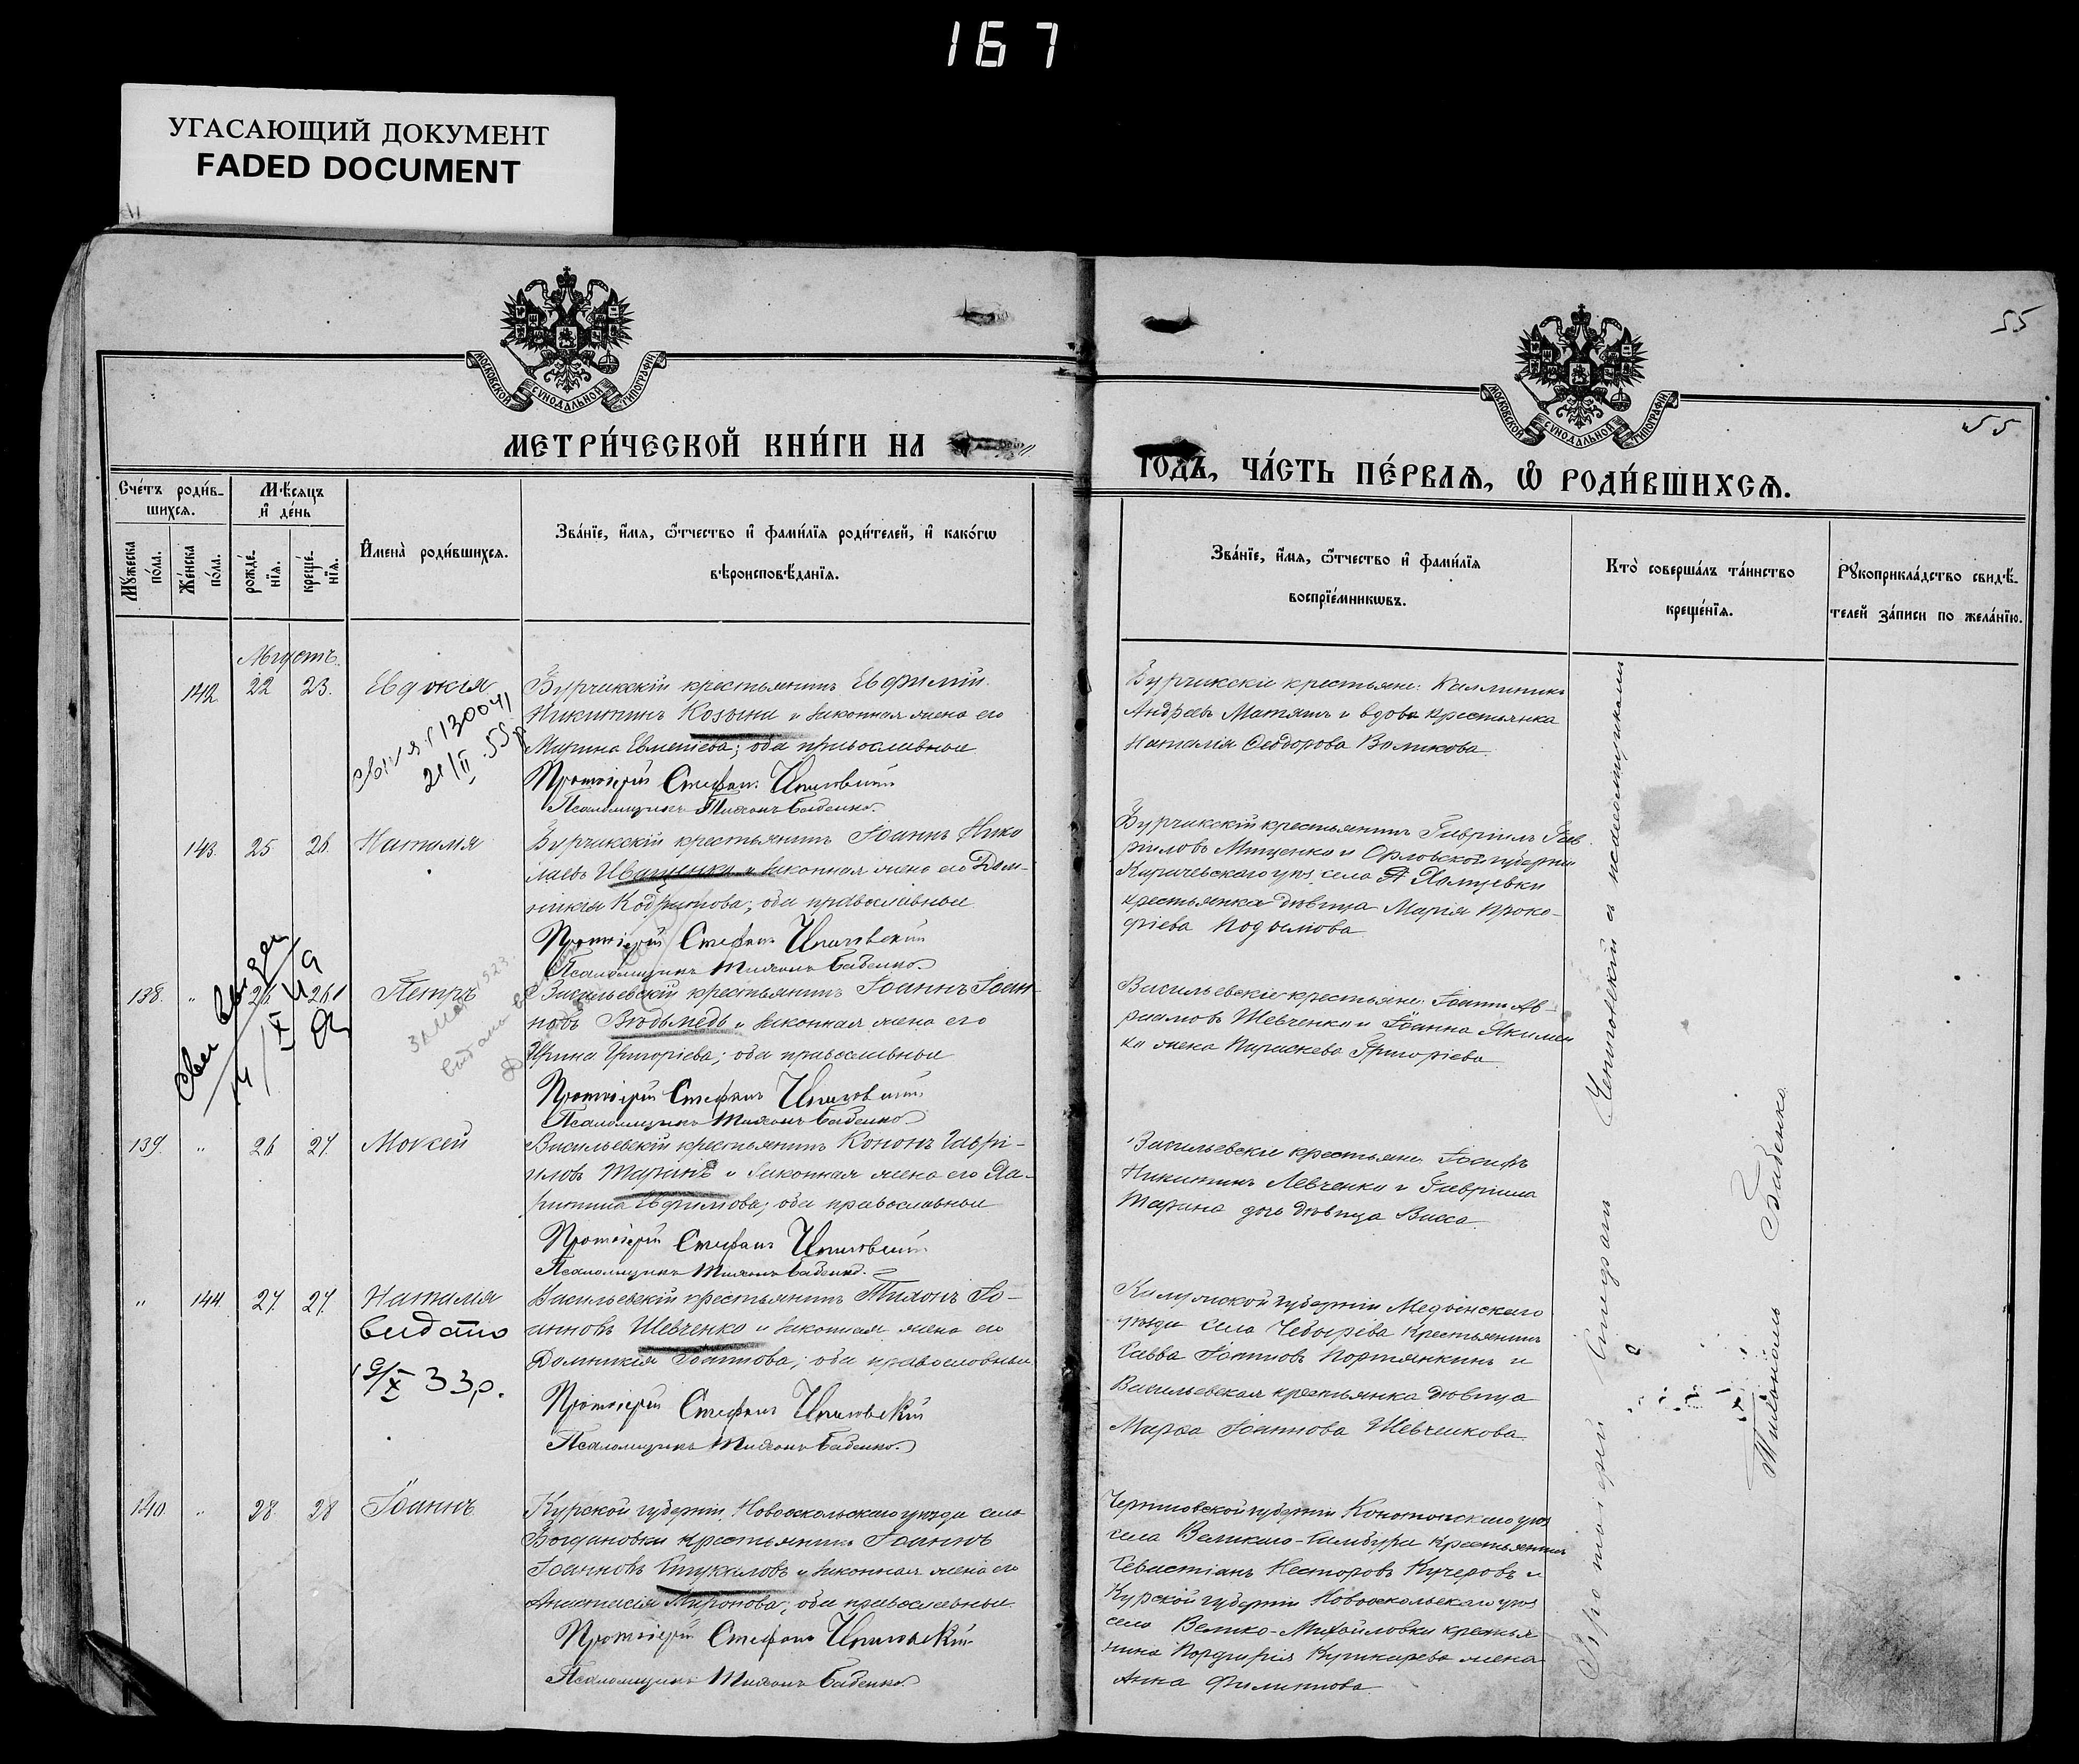 167
УГАСАЮЩИЙ ДОКУМЕНТ
FADED DOCUMENT
55
МОСКОВСКОЙ СѴНОДАЛЬНОЙ ТИПОГРАФІИ
МОСКОВСКОЙ СѴНОДАЛЬНОЙ ТИПОГРАФІИ
55
МЕТРИ́ЧЕСКОЙ КНИ́ГИ НА
ГОДЪ, ЧА́СТЬ ПЕ́РВАѦ, Ѡ РОДИ́ВШИХСѦ.
Сче́тъ роди́в-
шихсѧ.
Мꙋ́жеска по́ла.
Же́нска по́ла.
Мѣ́сѧцъ
и де́нь
рожде́-нїѧ.
креще́-нїѧ.
Имена̀ роди́вшихсѧ.
Зва́нїе, и́мѧ, ѻ҆́тчество и фами́лїѧ роди́телей, и како́гѡ
вѣроисповѣ́данїѧ.
Зва́нїе, и́мѧ, ѻ҆́тчество и фами́лїѧ
воспрїе́мникѡвъ.
Кто̀ соверша́лъ та́инство
креще́нїѧ.
Рꙋкоприкла́дство свидѣ́-
телей за́писи по жела́нїю.
Августъ.
142. 22 23. Евдокія
21/II 55р
Бурчакскій крестьянинъ Евфимій
Никитинъ Козьинъ и законная жена его
Марина Евменіева; оба православные
Протоіерей Стефанъ
Псаломщикъ Тихонъ Бабенко.
Бурчакскіе крестьяне: Каллиникъ
Андреевъ Матяшъ и вдова крестьянка
Наталія Ѳеодорова Воликова.
143. 25 26. Наталія
Бурчакскій крестьянинъ Іоаннъ Нико
лаевъ Иващенко и законная жена его Дом-
никія Кодратова; оба православные
Протоіерей Стефанъ
Псаломщикъ Тихонъ Бабенко.
Бурчакскій крестьянинъ Гавріилъ Гав
ріиловъ Мищенко и Орловской губерніи
села
крестьянка дѣвица Марія Проко-
фіева
138. " 26 Петръ
14/IX 49
Васильевскій крестьянинъ Іоаннъ Іоан
новъ Вѣдьмедь и законная жена его
Ирина Григоріева; оба православные
Протоіерей Стефанъ
Псаломщикъ Тихонъ Бабенко
Васильевскіе крестьяне: Іоаннъ Ав-
раамовъ Шевченко и Іоанна Якимен
ка жена Параскева Григоріева.
139. " 26 27. Мокей
Васильевскій крестьянинъ Кононъ Гаврі-
иловъ Таранъ и законная жена его Ха-
ритина Евфимова; оба православные
Протоіерей Стефанъ
Псаломщикъ Тихонъ Бабенко.
Васильевскіе крестьяне: Іосифъ
Никитинъ Левченко и Гавріила
Тарана дочь дѣвица Васса.
" 144. 27. 27. Наталія
видано
19/X 33р.
Васильевскій крестьянинъ Тихонъ Іо-
анновъ Шевченко и законная жена его
Домникія Іоаннова; оба православные
Протоіерей Стефанъ
Псаломщикъ Тихонъ Бабенко.
Калужской губерніи Медынскаго
уѣзда села крестьянинъ
Савва Іоанновъ Портянкинъ и
Васильевская крестьянка дѣвица
Марѳа Іоаннова Шевченкова.
140. " 28. 28 Іоаннъ
Курской губерніи, Новооскольскаго уѣзда села
Богдановки крестьянинъ Іоаннъ
Іоанновъ Стукаловъ и законная жена его
Анастасія Миронова; оба православные.
Протоіерей Стефанъ
Псаломщикъ Тихонъ Бабенко.
Черниговской губерніи Конотопскаго уѣз
села Великаго-Самбура крестьянинъ
Севастіанъ Несторовъ Кучеровъ и
Курской губерніи Новооскольскаго уѣз
села Велико-Михайловки крестья
нина Порфирія жена
Анна Филиппова.
Протоіерей Стефанъ съ псаломщикомъ
Тихономъ Бабенко.